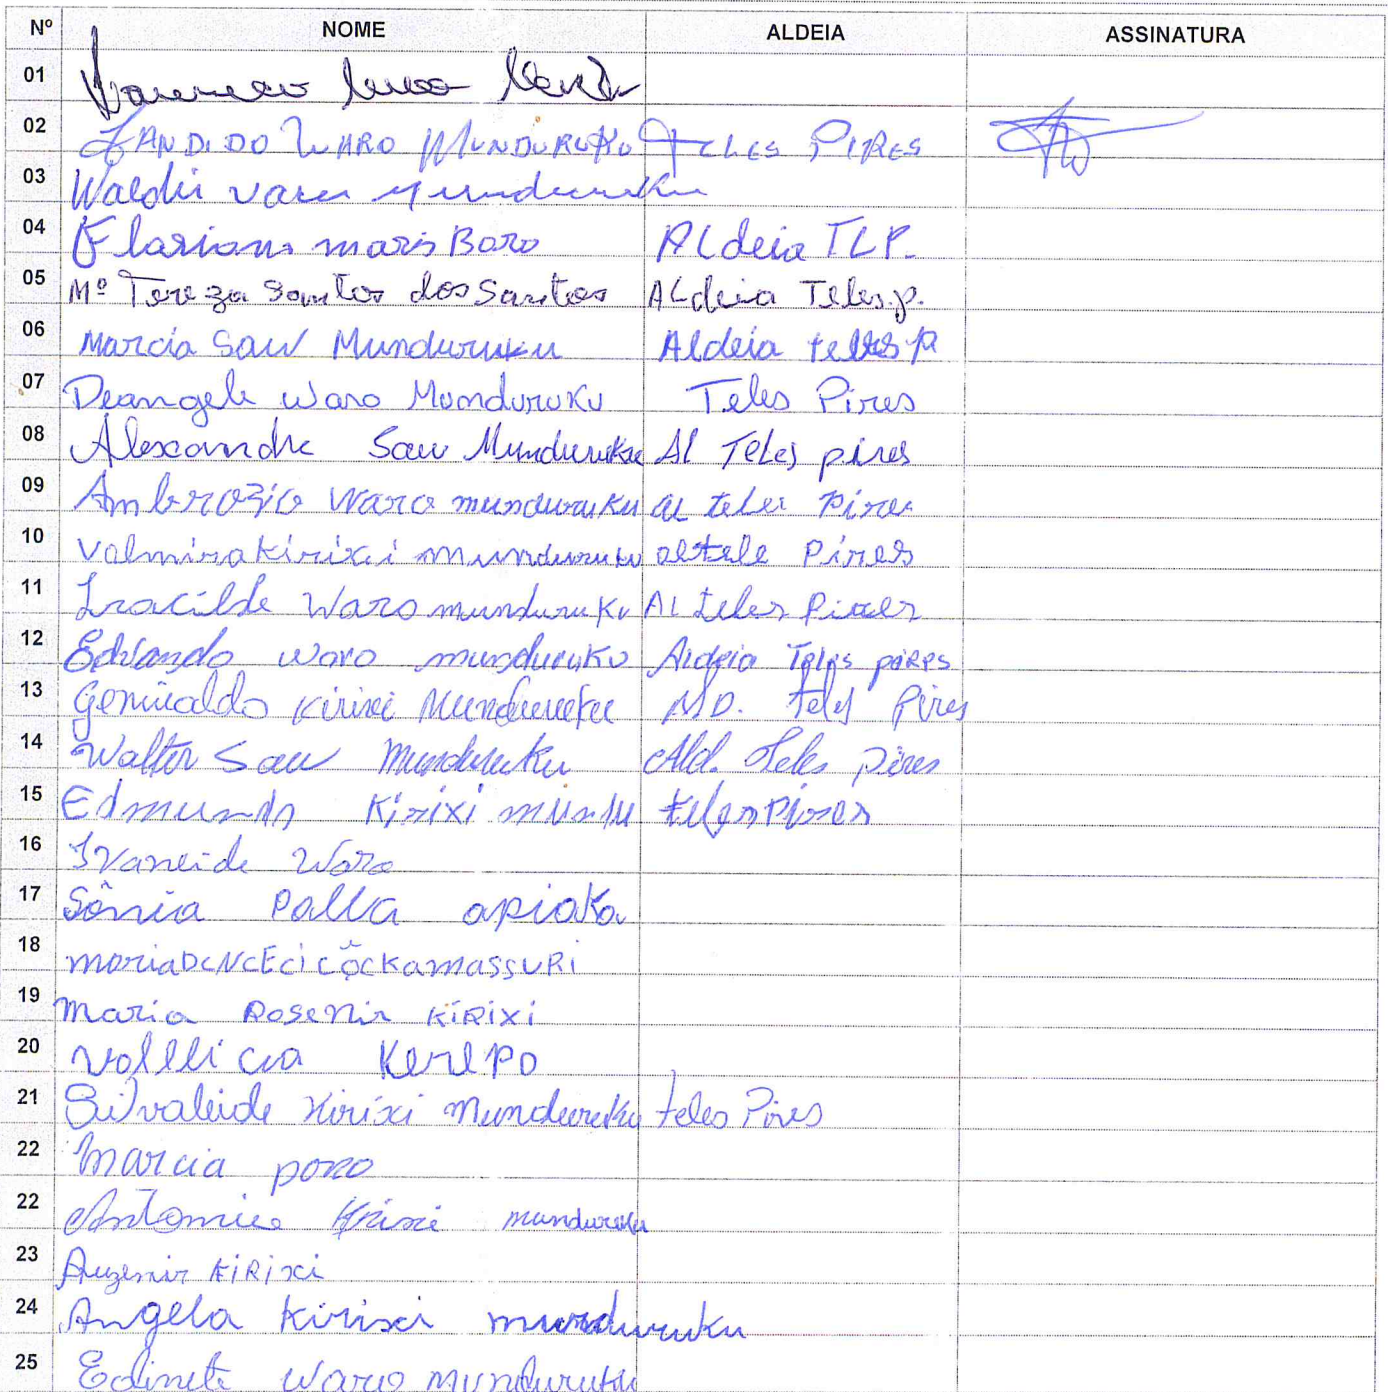 Nº NOME ALDEIA ASSINATURA
01
02 ZANDIDO WARO MUNDURUKU TELES PIRES
03 Waldir Munduruku
04 maris Boro Aldeia TLP.
05 Mª Tereza Santos dos Santos ALdeia Teles.p.
06 Marcia Saw Munduruku Aldeia teles P
07 Deangele Waro Munduruku Teles Pires
08 Alexandre Saw Munduruku Al Teles pires
09 Ambrozio Waro munduruku al teles Pires
10 Valmira kirixi munduruku al tele Pires
11 Iracilde Waro munduruku Al teles Pires
12 Edivando waro munduruku Aldeia Teles pires
13 Genivaldo Kirixi Munduruku AlD. teles Pires
14 Walter Saw Munduruku Ald. Teles pires
15 Edmundo Kirixi mundu teles pires
16 Ivaneide Waro
17 Sônia Palla apiaka
18 maria
19 Maria Rosenir KiRiXi
20 Kerepo
21 Silvaleide Kirixi Munduruku teles Pires
22 Marcia poxo
22 Kirixi munduruku
23 Auzenir KiRixi
24 Angela kirixi munduruku
25 Edinete Waro munduruku